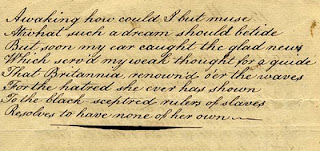 Awaking how could I but muse
At what such a dream should betide
But soon my ear caught the glad news
Which serv'd my weak thought for a guide
That Britannia renown'd o'er the waves
For the hatred she ever has shown
To the black-sceptred rulers of slaves
Resolves to have none of her own